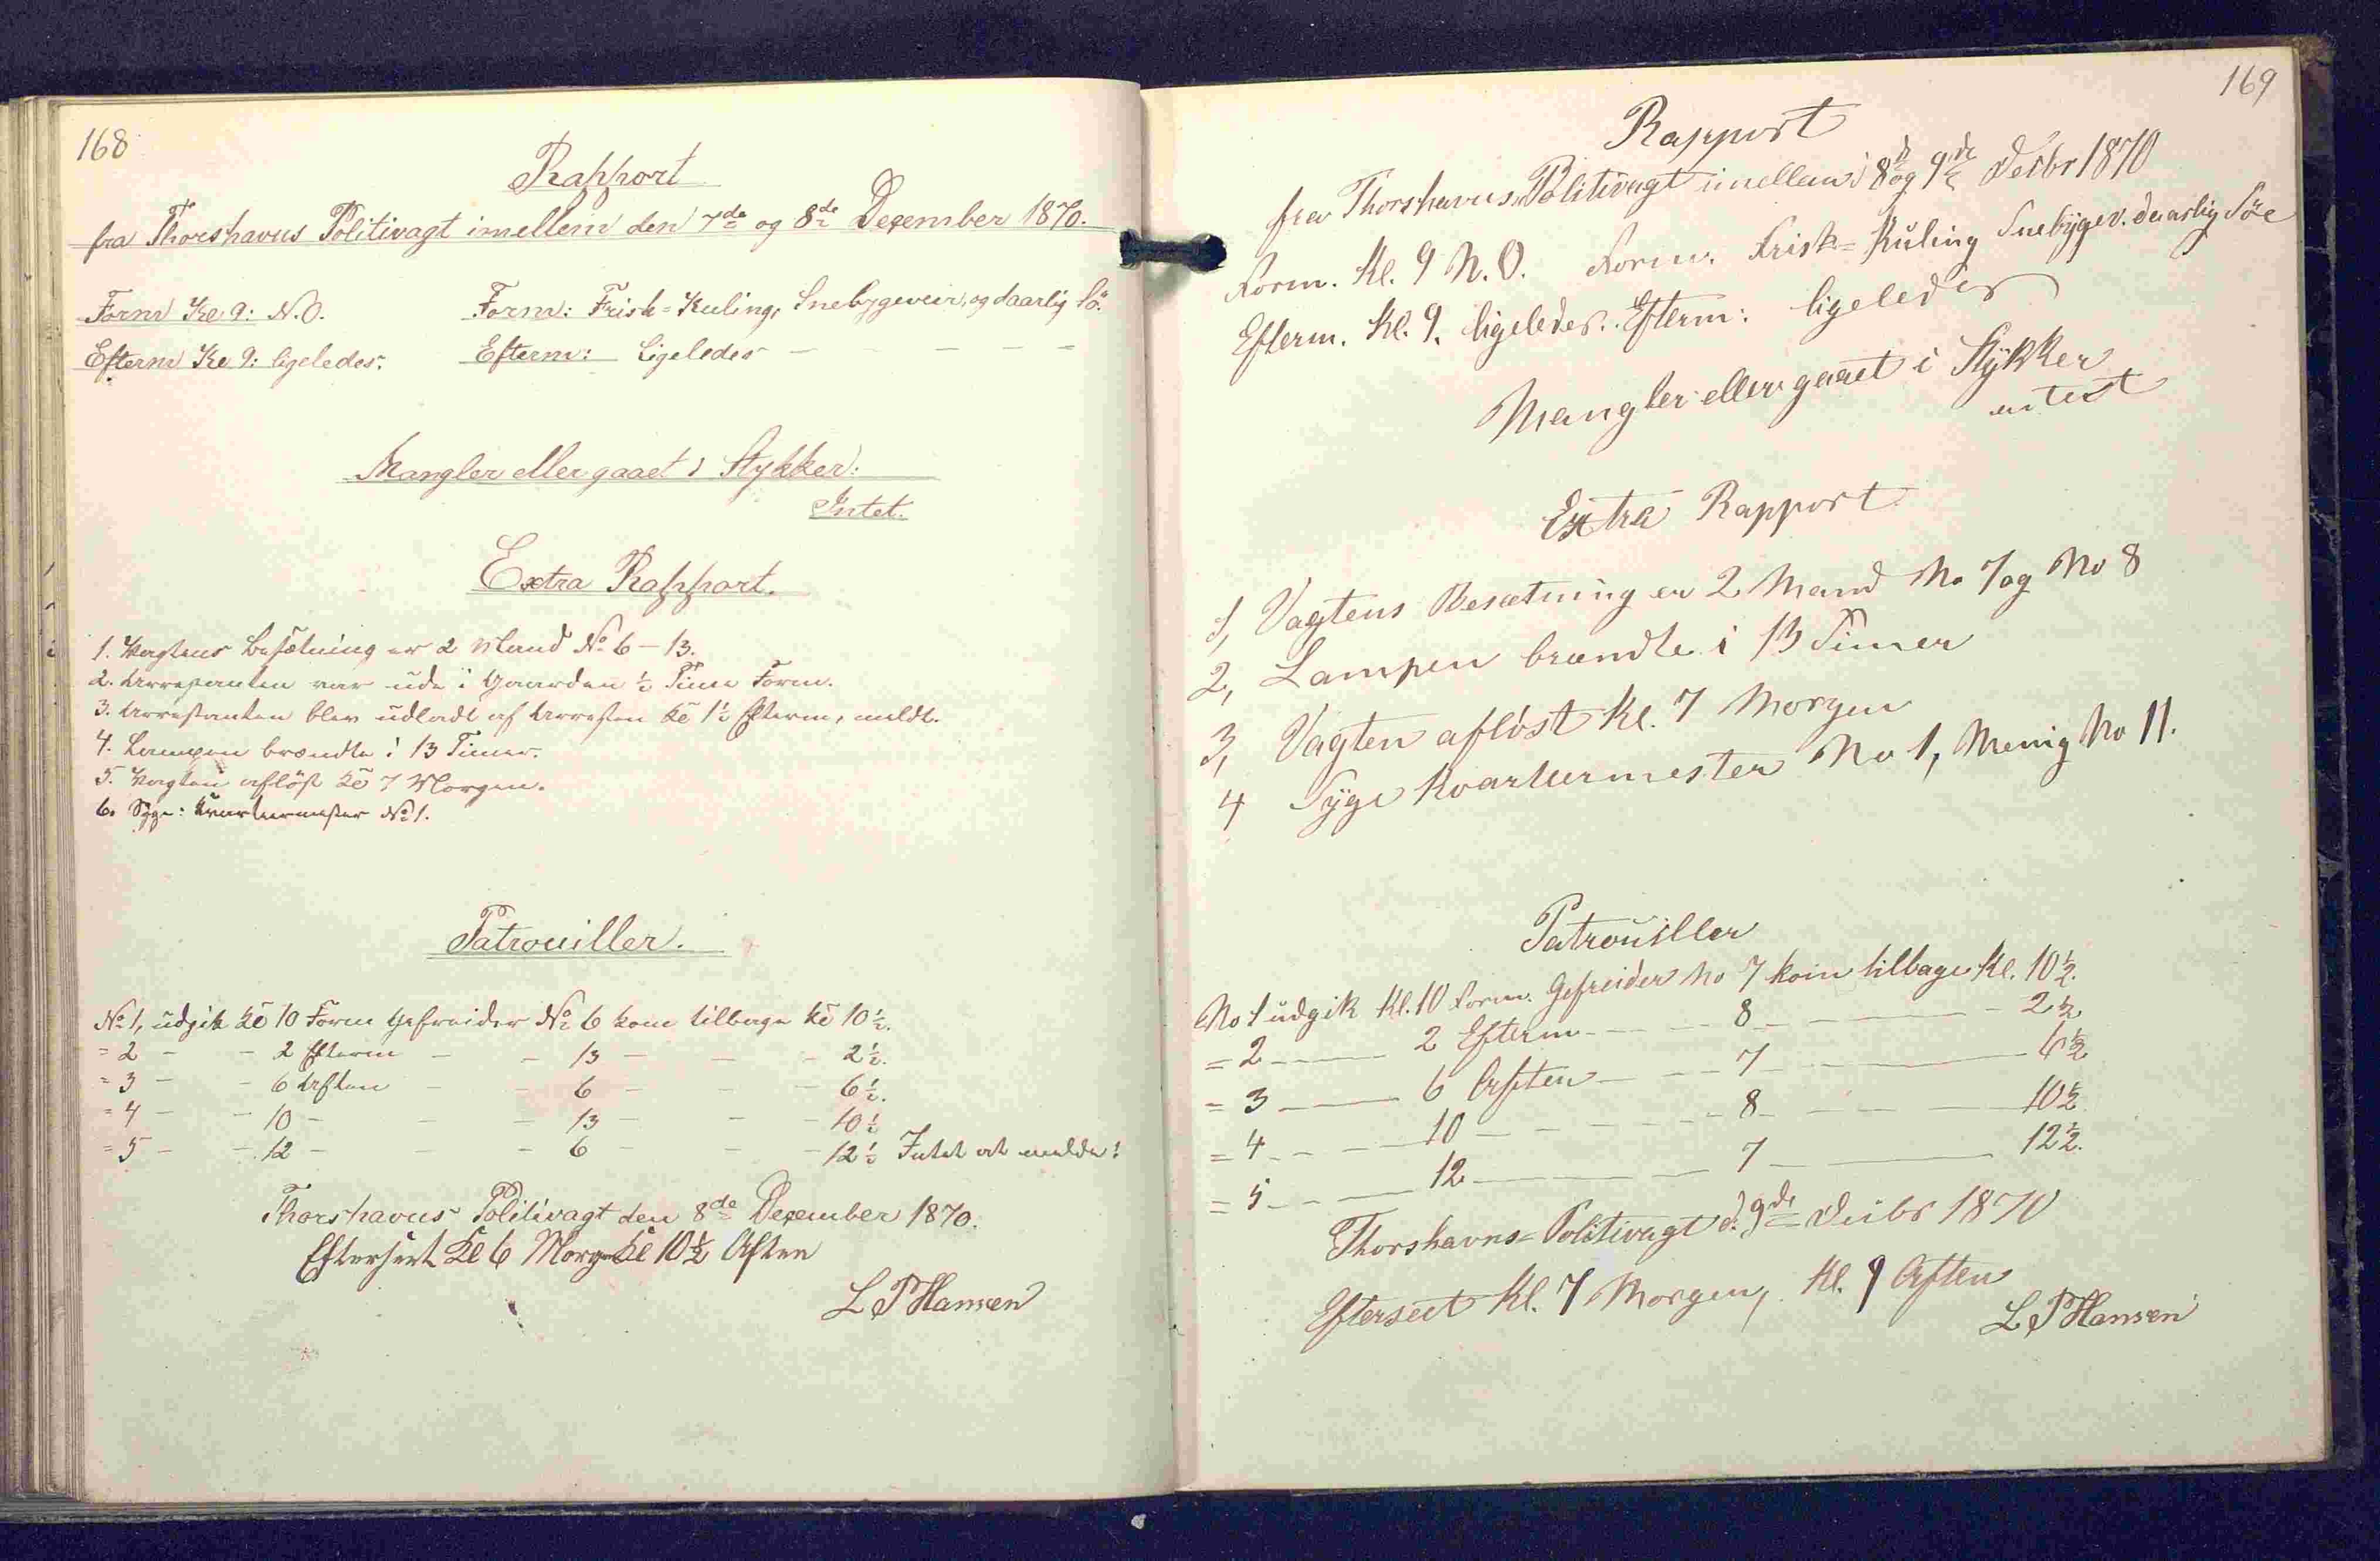 168
Rapport
fra Thorshavns Politivagt imellem den 7de og 8de December 1870.
Form Kl 9: N.O. Form: Frisk=Kuling, Snebygeveir, og daarlig Sö.
Efterm Kl 9: ligeledes. Efterm: Ligeledes — — — — —
Mangler eller gaaet i Stykker:
Intet.
Extra Rapport.
1. Vagtens Besætning er 2 Mand No 6 – 13.
2. Arrestanten var ude i Gaarden ½ Time Form.
3. Arrestanten blev udladt af Arresten Kl 1½ Efterm, meldt.
4. Lampen brændte i 13 Timer.
5. Vagten aflöst Kl 7 Morgen.
6. Syge: Kvarteermester No 1.
Patrouiller.
No 1, udgik Kl 10 Form Gefreider No 6 kom tilbage Kl 10½.
= 2 — — 2 Efterm — — 13 — — — 2½.
= 3 — — 6 Aften — — 6 — — — 6½.
= 4 — — 10 — — — 13 — — — 10½
= 5 — — 12 — — — 6 — — — 12½ Intet at melde!
Thorshavns Politivagt den 8de December 1870.
Efterseet Kl 6 Morg Kl 10½ Aften
L P Hansen
169
Rapport
fra Thorshavns Politivagt imellem d 8d og 9de Decbr 1870
Form. Kl. 9 N.O. Form. Frisk=Kuling Snebygev. daarlig Söe
Efterm. Kl. 9. ligeledes. Efterm: ligeledes
Mangler eller gaaet i Stykker
intet
Extra Rapport
1, Vagtens Besætning er 2 Mand No 7 og No 8
2, Lampen brændte i 13 Timer
3, Vagten aflöst Kl. 7 Morgen
4 Syge Kvarteermester No 1, Menig No 11.
Patrouiller
No 1 udgik Kl. 10 Form. Gefreider No 7 kom tilbage Kl. 10½.
= 2 — — 2 Efterm — — 8 — — — 2½
= 3 — — 6 Aften — — 7 — — — 6½
= 4 — — 10 — — — 8 — — — 10½
= 5 — — 12 — — — 7 — — — 12½.
Thorshavns=Politivagt d. 9de Decbr 1870
Efterseet Kl. 7 Morgen, Kl. 9 Aften
L P Hansen